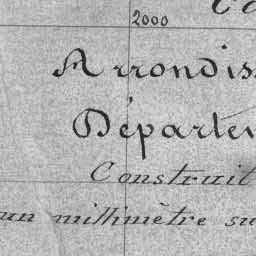 2000
Arrondis
Départe
Construit
un millimètre su